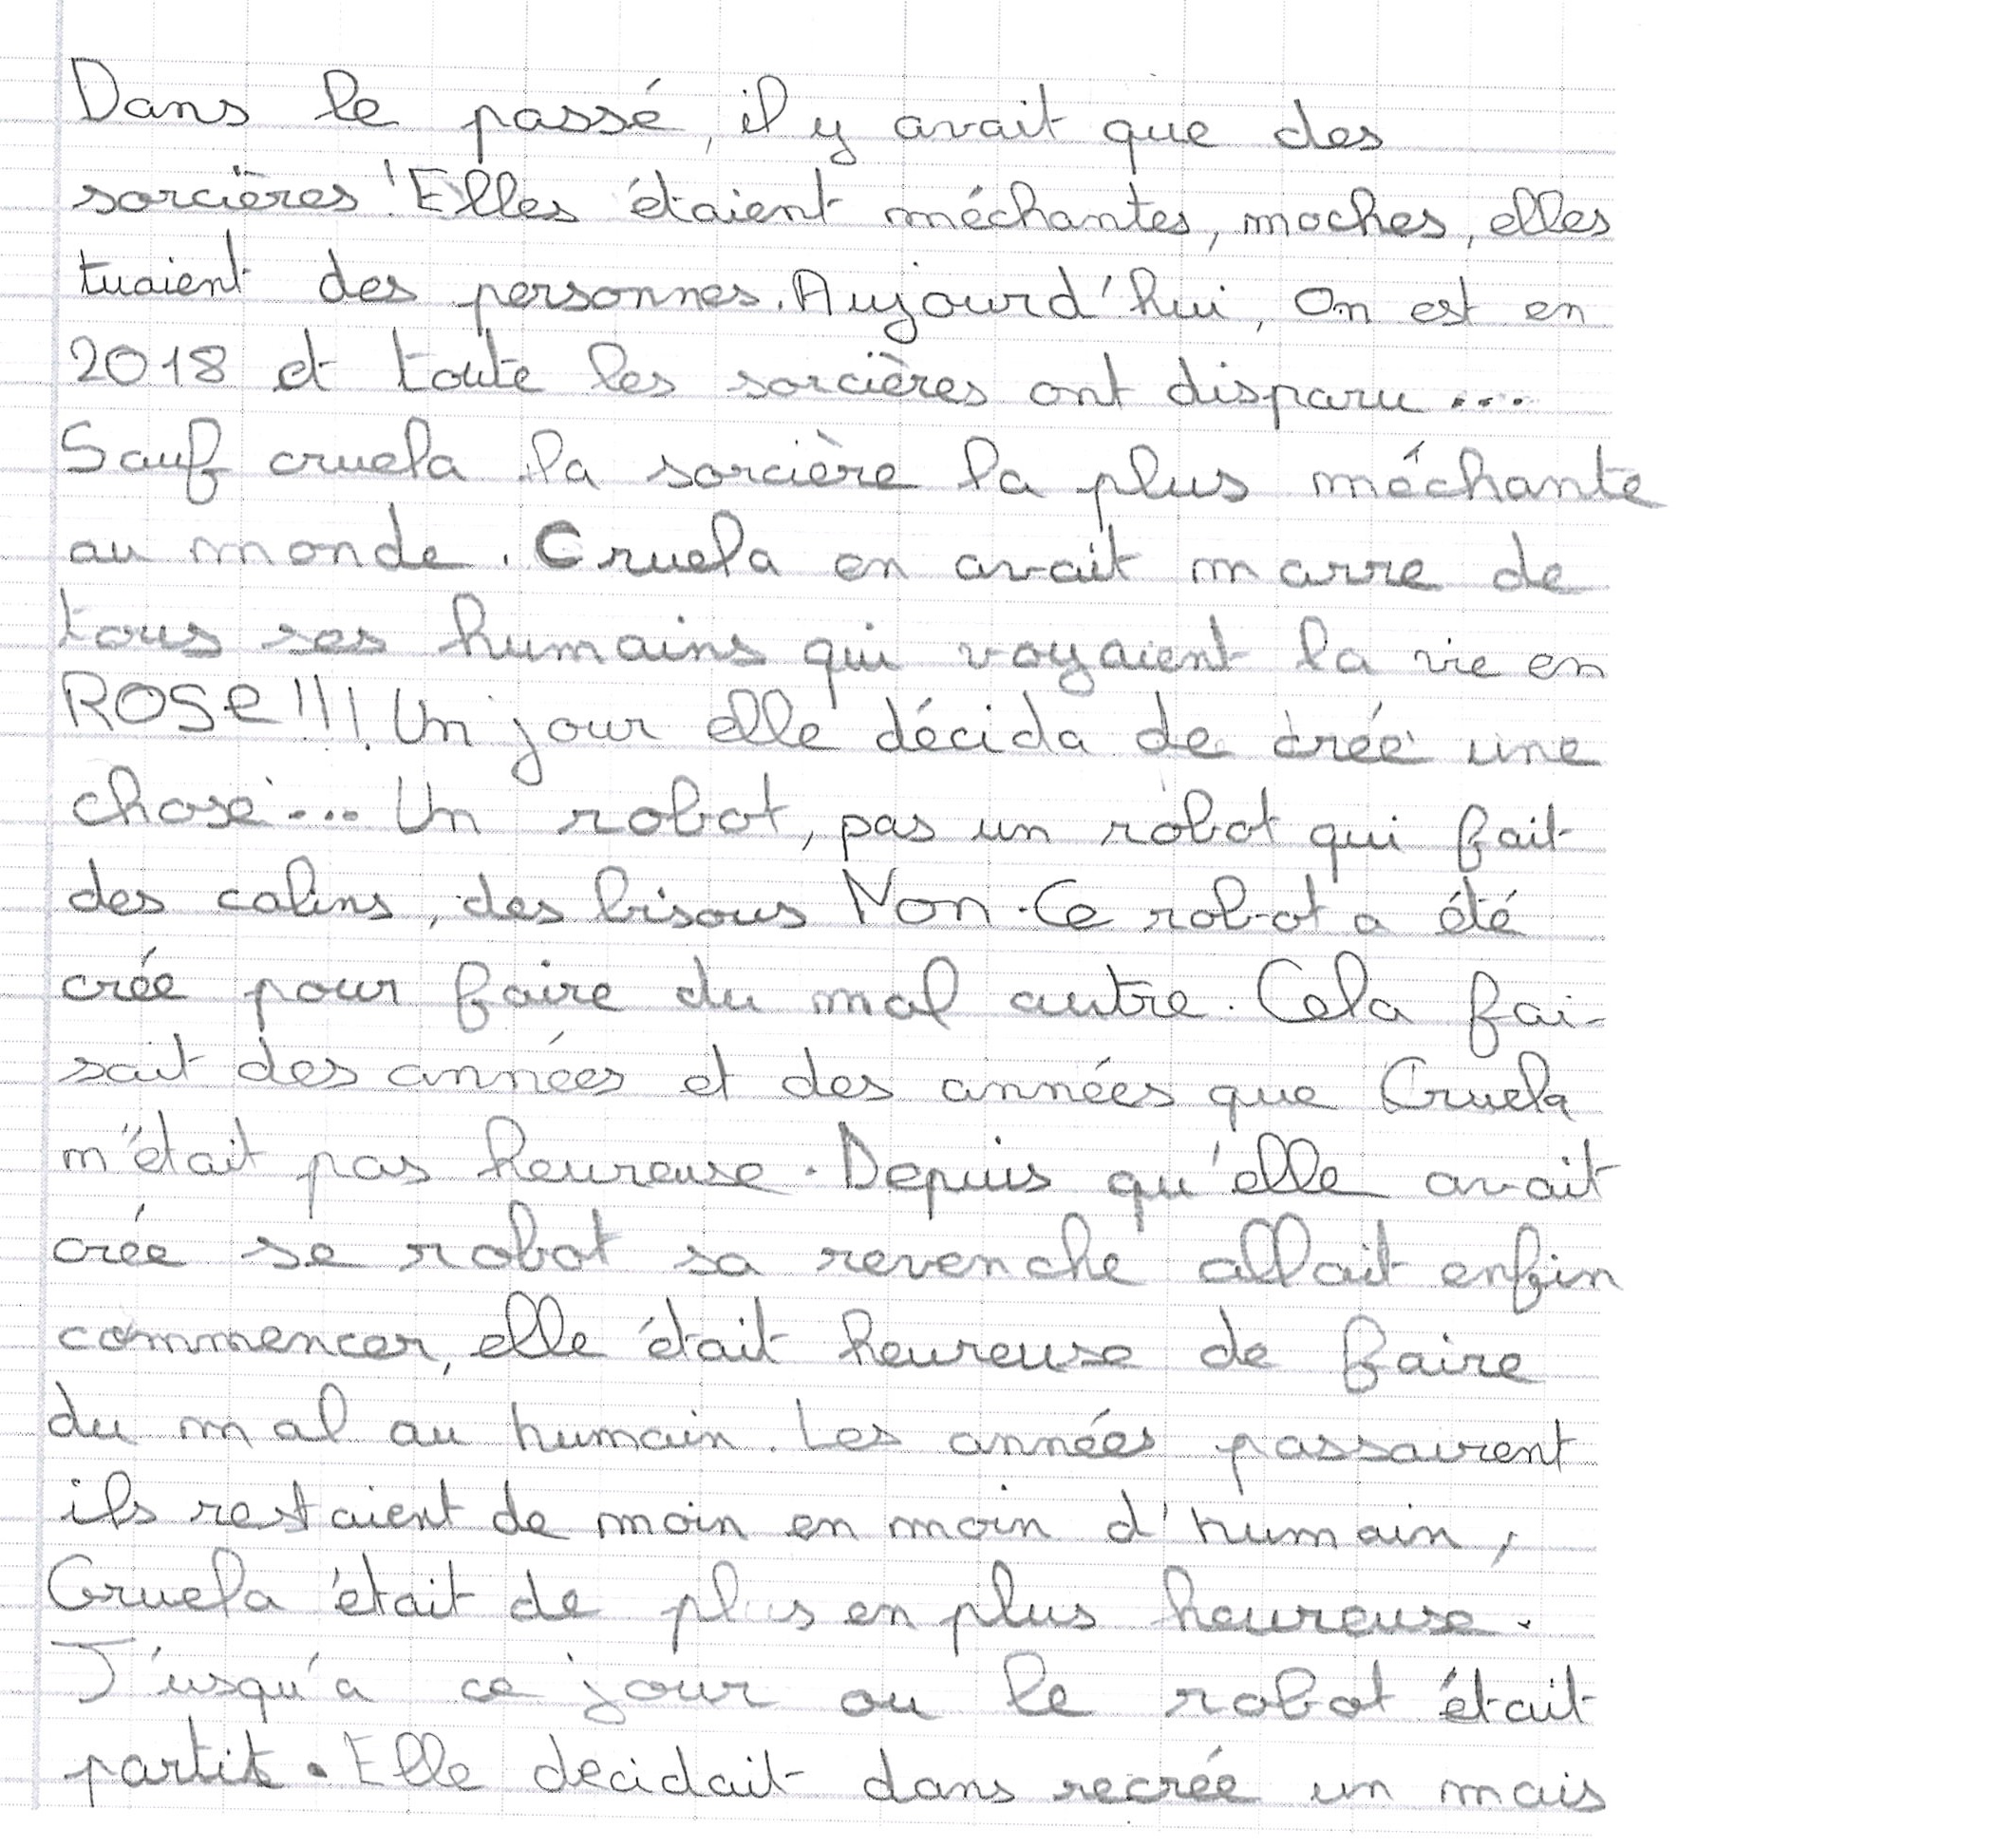 Dans le passé, il y avait que des
sorcières ! Elles étaient méchantes, moches, elles
tuaient des personnes. Aujourd'hui, On est en
2018 et toute les sorcières ont disparu ...
Sauf cruela la sorcière la plus méchante
au monde. Cruela en avait marre de
tous ses humains qui voyaient la vie en
ROSE !!! Un jour elle décida de créé une
chose ... Un robot, pas un robot qui fait
des calins, des bisous Non. Ce robot a été
crée pour faire du mal autre. Cela fai-
sait des années et des années que Cruela
m'était pas heureuse. Depuis qu'elle avait
crée se robot sa revenche allait enfin
commencer, elle était heureuse de faire
du mal au humain. Les années passairent
ils restaient de moin en moin d'humain,
Cruela était de plus en plus heureuse.
J'usqu'a ce jour ou le robot était
partit. Elle decidait dans recrée un mais